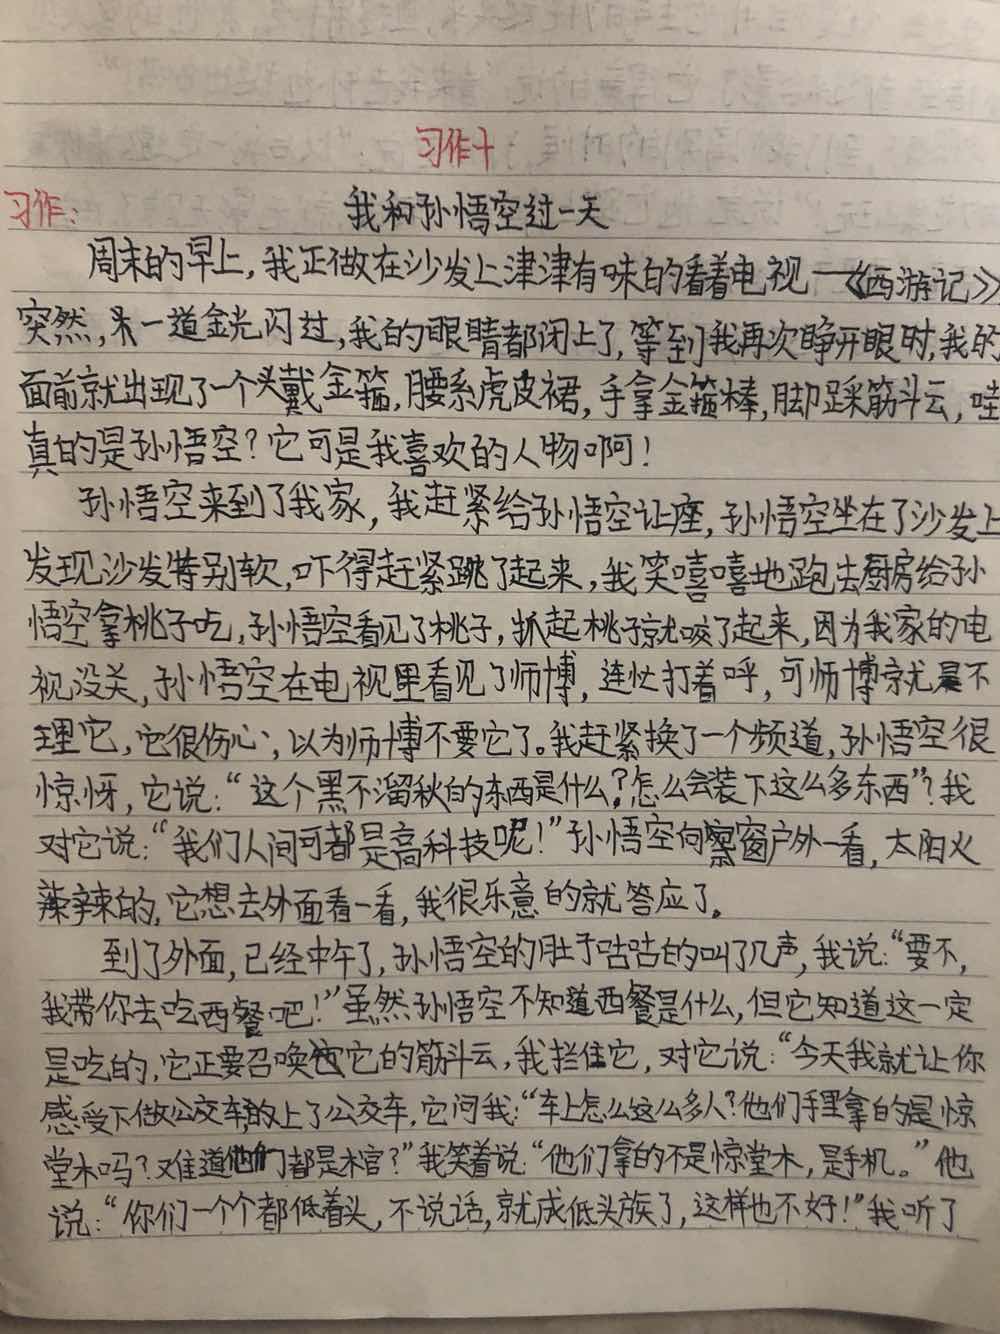 习作十
习作:
我和孙悟空过一天
周末的早上,我正做在沙发上津津有味的看着电视—《西游记》
突然,一道金光闪过,我的眼睛都闭上了,等到我再次睁开眼时,我的
面前就出现了一个头戴金箍,腰系虎皮裙,手拿金箍棒,脚踩筋斗云,哇
真的是孙悟空?它可是我喜欢的人物啊!
孙悟空来到了我家,我赶紧给孙悟空让座,孙悟空坐在了沙发上
发现沙发特别软,吓得赶紧跳了起来,我笑嘻嘻地跑去厨房给孙
悟空拿桃子吃,孙悟空看见了桃子,抓起桃子就咬了起来,因为我家的电
视没关,孙悟空在电视里看见了师博,连忙打着呼,可师博就是不
理它,它很伤心,以为师博不要它了。我赶紧换了一个频道,孙悟空很
惊讶,它说:“这个黑不溜秋的东西是什么?怎么会装下这么多东西”?我
对它说:“我们人间可都是高科技呢!”孙悟空向窗户外一看,太阳火
辣辣的,它想去外面看一看,我很乐意的就答应了。
到了外面,已经中午了,孙悟空的肚子咕咕的叫了几声,我说:“要不,
我带你去吃西餐吧!”虽然孙悟空不知道西餐是什么,但它知道这一定
是吃的,它正要召唤它的筋斗云,我拦住它,对它说:“今天我就让你
感受下做公交车的,上了公交车,它问我:“车上怎么这么多人?他们手里拿的是惊
堂木吗?难道他们都是木官?”我笑着说:“他们拿的不是惊堂木,是手机。”他
说:“你们一个个都低着头,不说话,就成低头族了,这样也不好!”我听了